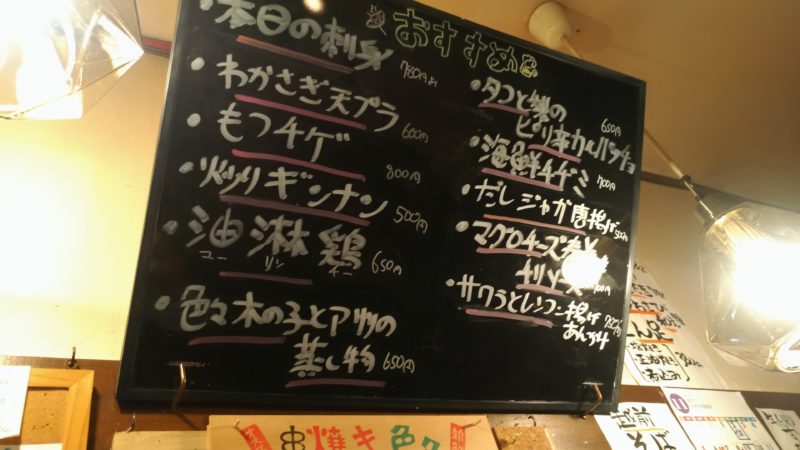 おすすめ
・本日の刺身 780円より
・わかさぎ天プラ 600円
・もつチゲ 800円
・炒りギンナン 500円
・油淋鶏 650円
ユー リン チー
・色々木の子とアサリの
蒸し物 650円
・タコと梨の
ピリ辛カルパッチョ 650円
・海鮮チヂミ 700円
・だしジャガ唐揚げ 500円
・マグロチーズ
チリソース
・サワラとレンコン揚げ
あんかけ
串焼き色々
越前
そば